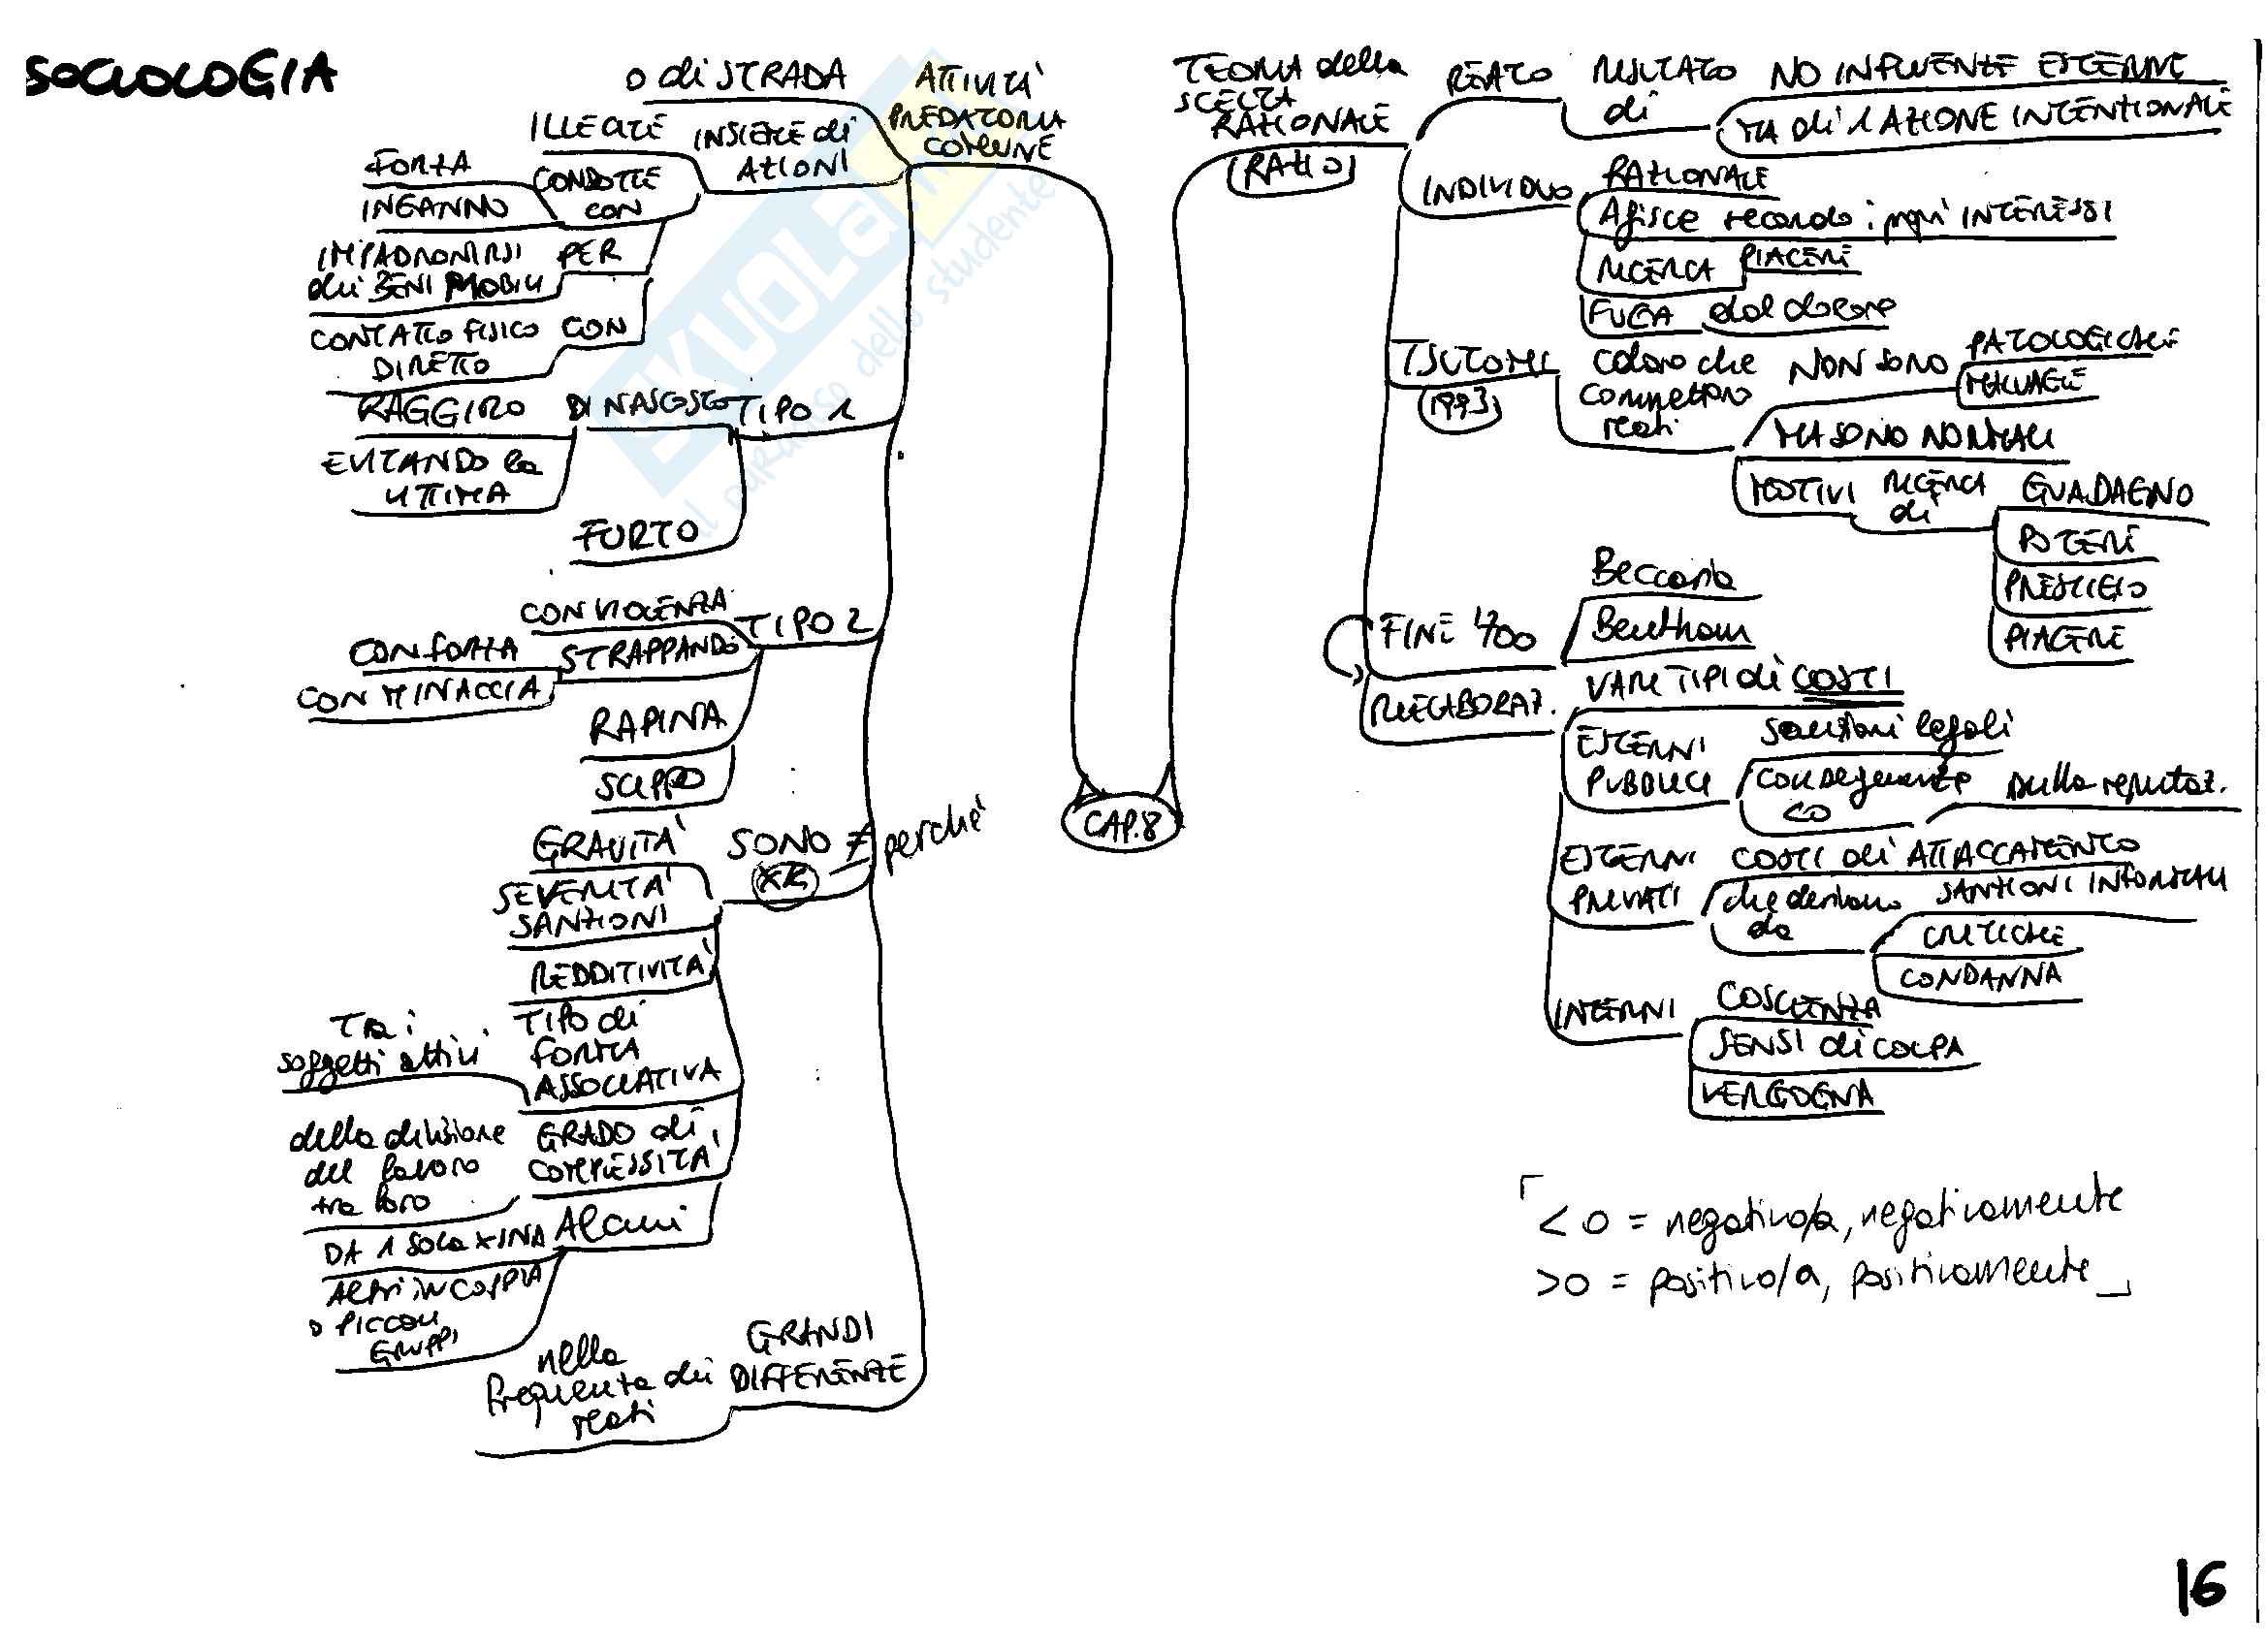 SOCIOLOGIA
ATTIVITÀ
PREDATORIA
COMUNE
o di STRADA
INSIEME di
AZIONI
ILLEGALI
CONDOTTE
CON
FORZA
INGANNO
PER
IMPADRONIRSI
dei BENI MOBILI
CON
CONTATTO FISICO
DIRETTO
TIPO 1
DI NASCOSTO
RAGGIRO
EVITANDO la
VITTIMA
FURTO
TIPO 2
CON VIOLENZA
STRAPPANDO
CON FORZA
CON MINACCIA
RAPINA
SCIPPO
SONO ≠
perché
GRAVITÀ
SEVERITÀ
SANZIONI
REDDITIVITÀ
TIPO di
FORMA
ASSOCIATIVA
Tra i
soggetti attivi
GRADO di
COMPLESSITÀ
della divisione
del lavoro
tra loro
Alcuni
DA 1 SOLA XSONA
Altri in COPPIA
o PICCOLI
GRUPPI
GRANDI
DIFFERENZE
nella
frequenza dei
reati
CAP. 8
TEORIA della
SCELTA
RAZIONALE
(RATIO)
REATO
RISULTATO
di
NO INFLUENZE ESTERNE
MA di 1 AZIONE INTENZIONALE
INDIVIDUO
RAZIONALE
Agisce secondo i propri INTERESSI
RICERCA PIACERI
FUGA dal dolore
TSUTOMI
(1993)
coloro che
commettono
reati
NON SONO
PATOLOGICHE
MALVAGIE
MA SONO NORMALI
MOTIVI
RICERCA
di
GUADAGNO
POTERI
PRESTIGIO
PIACERE
FINE '700
Beccaria
Bentham
RIELABORAZ.
VARI TIPI di COSTI
ESTERNI
PUBBLICI
sanzioni legali
conseguenze
<0
sulla reputaz.
ESTERNI
PRIVATI
COSTI di ATTACCAMENTO
che derivano
da
SANZIONI INFORMALI
CRITICHE
CONDANNA
INTERNI
COSCIENZA
SENSI di COLPA
VERGOGNA
< 0 = negativo/a, negativamente
> 0 = positivo/a, positivamente
16
SKUOLA
il paradiso dello studente